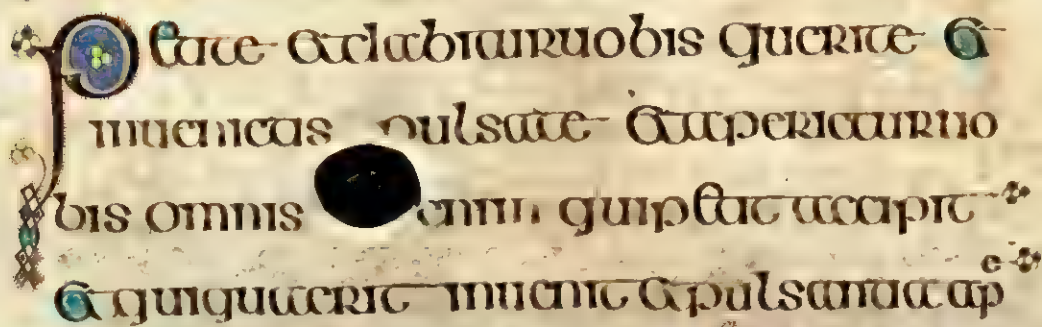 Petite et dabitur uobis querite et
inuenietis pulsate et aperietur uo
bis omnis enim qui petit accipit
et qui quaerit inuenit et pulsanti ape